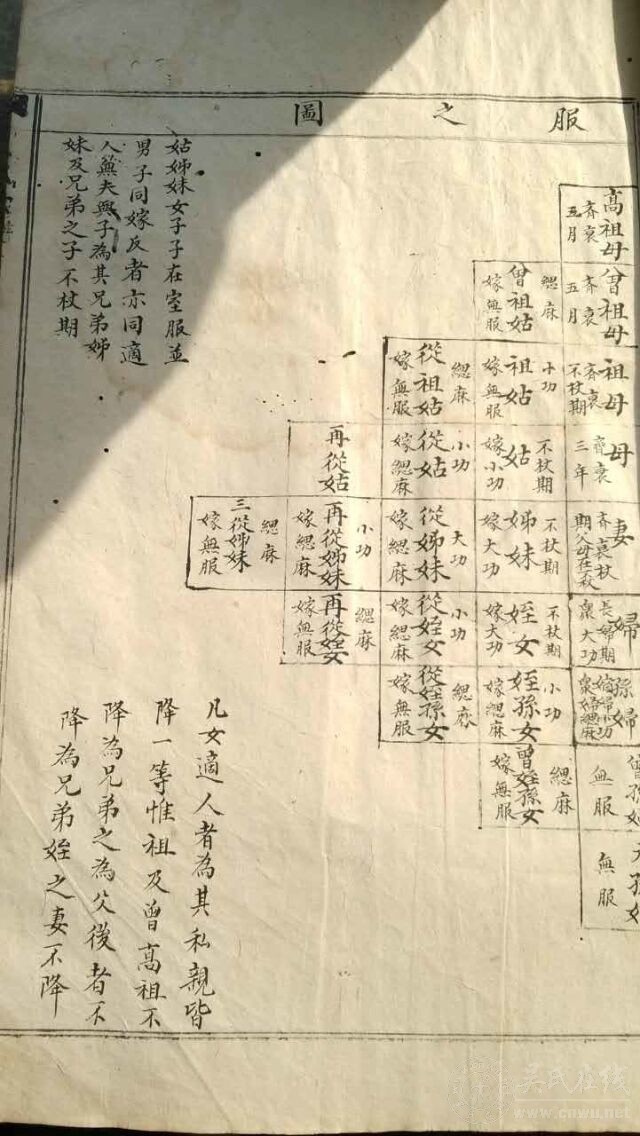 服之圖
高祖母
齊衰
五月
曾祖母
齊衰
五月
曾祖姑
緦麻
嫁無服
祖母
齊衰
不杖期
祖姑
小功
嫁無服
從祖姑
緦麻
嫁無服
母
齊衰
三年
姑
不杖期
嫁小功
從姑
小功
嫁緦麻
再從姑
妻
齊衰杖
姊妹
不杖期
嫁大功
從姊妹
大功
嫁緦麻
再從姊妹
小功
嫁緦麻
三從姊妹
緦麻
嫁無服
婦
長婦期
衆大功
姪女
不杖期
嫁大功
從姪女
小功
嫁緦麻
緦麻
嫁無服
孫婦
姪孫女
小功
嫁緦麻
從姪孫女
緦麻
嫁無服
無服
曾姪孫女
緦麻
嫁無服
無服
姑姊妹女子子在室服並
男子同嫁反者亦同適
人無夫與子為其兄弟姊
妹及兄弟之子不杖期
凡女適人者為其私親皆
降一等惟祖及曾高祖不
降為兄弟之為父後者不
降為兄弟姪之妻不降
吴氏在线
www.cnwu.net